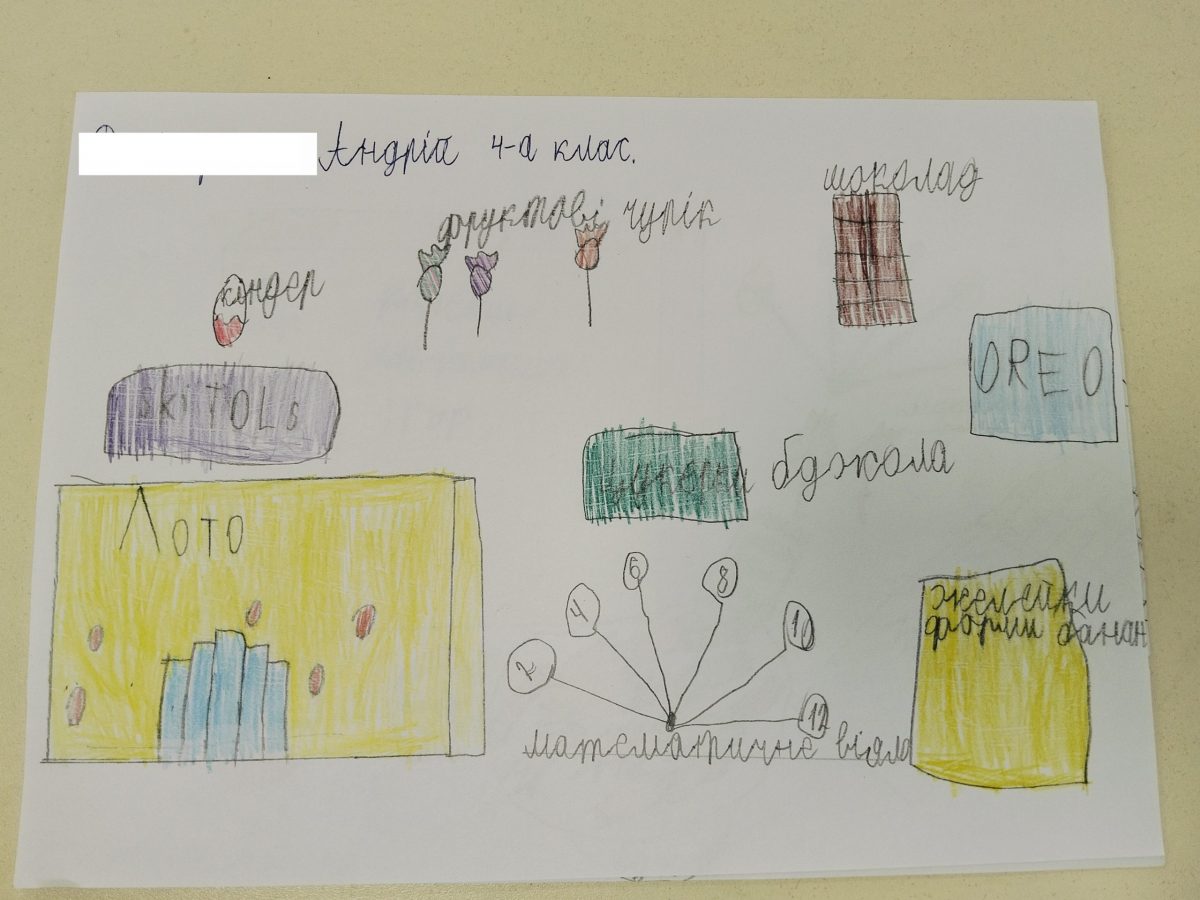 Андрій 4-а клас.
шоколад
фруктові чупік
кіндер
OREO
SkiTOLs
цукерки бджола
Лото
6
8
4
10
2
12
желейки
форми банан
математичне віяло